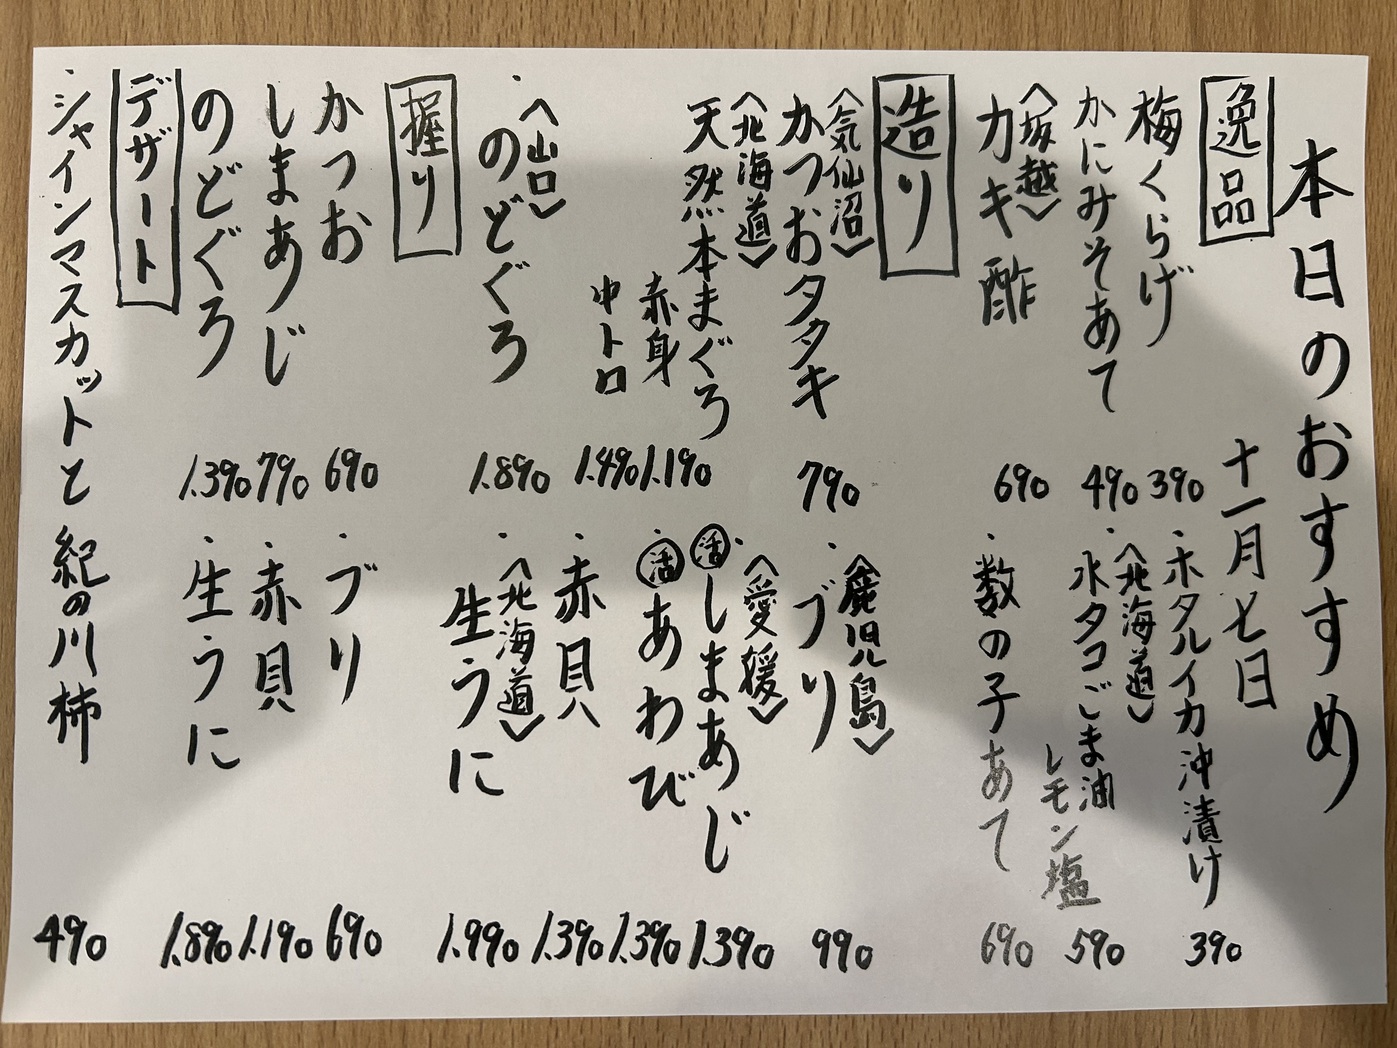 本日のおすすめ
十一月七日
逸品
梅くらげ 390
・ホタルイカ沖漬け 390
かにみそあて 490
・〈北海道〉
水タコごま油
レモン塩 590
〈坂越〉
カキ酢 690
・数の子あて 690
造り
〈気仙沼〉
かつおタタキ 790
・〈鹿児島〉
ブリ 990
〈北海道〉
天然本まぐろ
赤身 1.190
中トロ 1.490
・〈愛媛〉
活しまあじ 1.390
・活あわび 1.390
・〈山口〉
のどぐろ 1.890
・赤貝 1.390
・〈北海道〉
生うに 1.990
握り
かつお 690
・ブリ 690
しまあじ 790
・赤貝 1.190
のどぐろ 1.390
・生うに 1.890
デザート
・シャインマスカットと紀の川柿 490